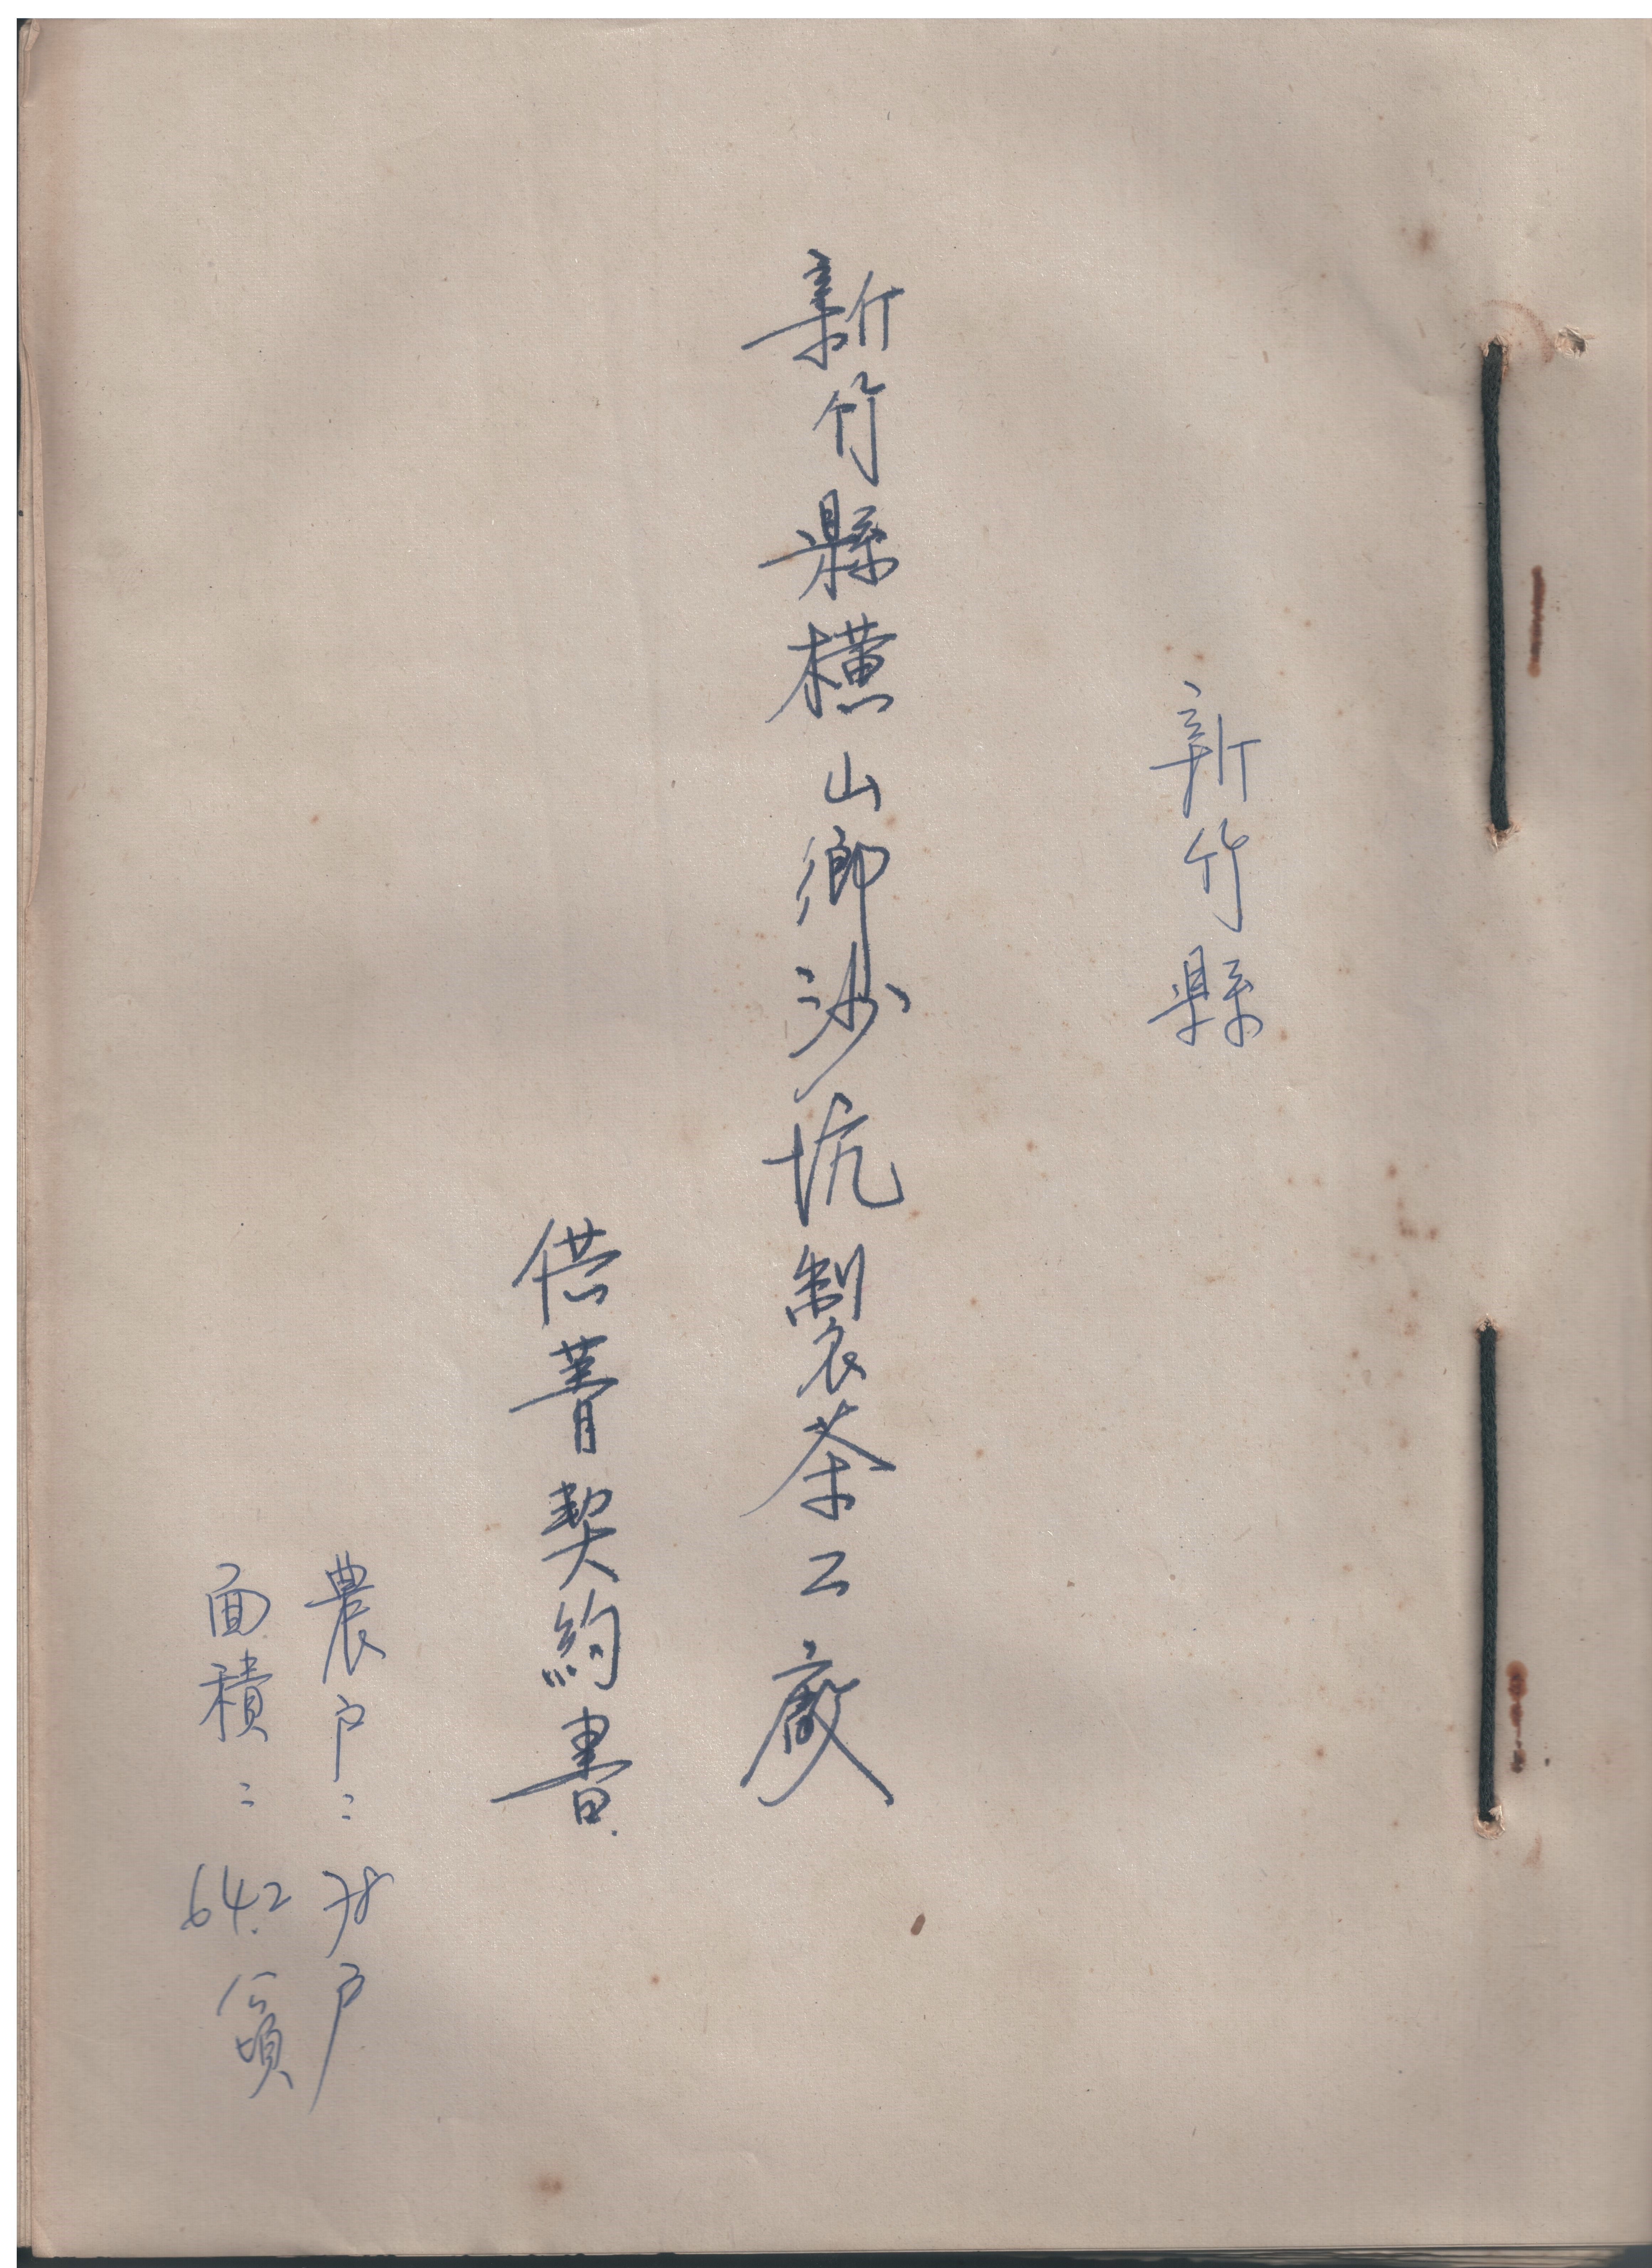 新竹縣
新竹縣橫山鄉沙坑製茶工廠
供菁契約書
農戶：78戶
面積：64.2公頃